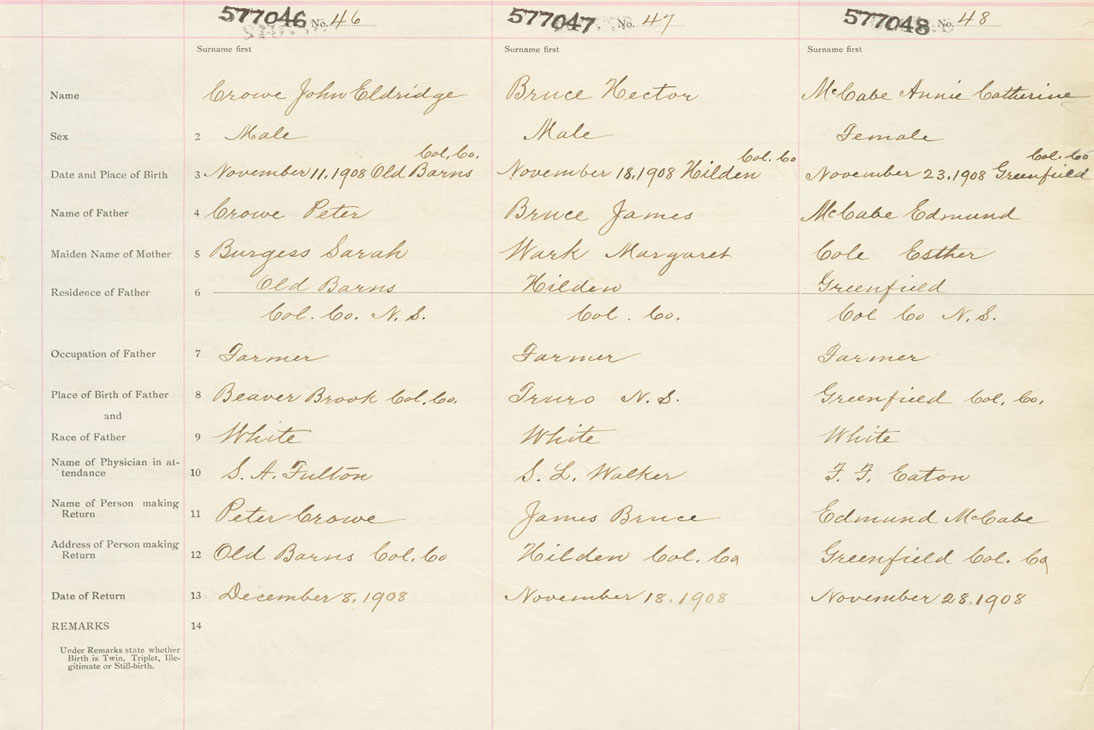 577046 No. 46 577047 No. 47 577048 No. 48
Surname first Surname first Surname first
Name Crowe John Eldridge Bruce Hector McCabe Annie Catherine
Sex 2 Male Male Female
Col. Co. Col. Co Col. Co
Date and Place of Birth 3 November 11, 1908 Old Barns November 18, 1908 Hilden November 23, 1908 Greenfield
Name of Father 4 Crowe Peter Bruce James McCabe Edmund
Maiden Name of Mother 5 Burgess Sarah Wark Margaret Cole Esther
Residence of Father 6 Old Barns Hilden Greenfield
Col. Co. N.S. Col. Co. Col Co N.S.
Occupation of Father 7 Farmer Farmer Farmer
Place of Birth of Father 8 Beaver Brook Col. Co. Truro N.S. Greenfield Col. Co.
and
Race of Father 9 White White White
Name of Physician in at-
tendance 10 S. A. Fulton S. L. Walker F. F. Eaton
Name of Person making
Return 11 Peter Crowe James Bruce Edmund McCabe
Address of Person making
Return 12 Old Barns Col. Co Hilden Col. Co Greenfield Col. Co
Date of Return 13 December 8, 1908 November 18, 1908 November 28, 1908
REMARKS 14
Under Remarks state whether
Birth is Twin, Triplet, Ille-
gitimate or Still-birth.